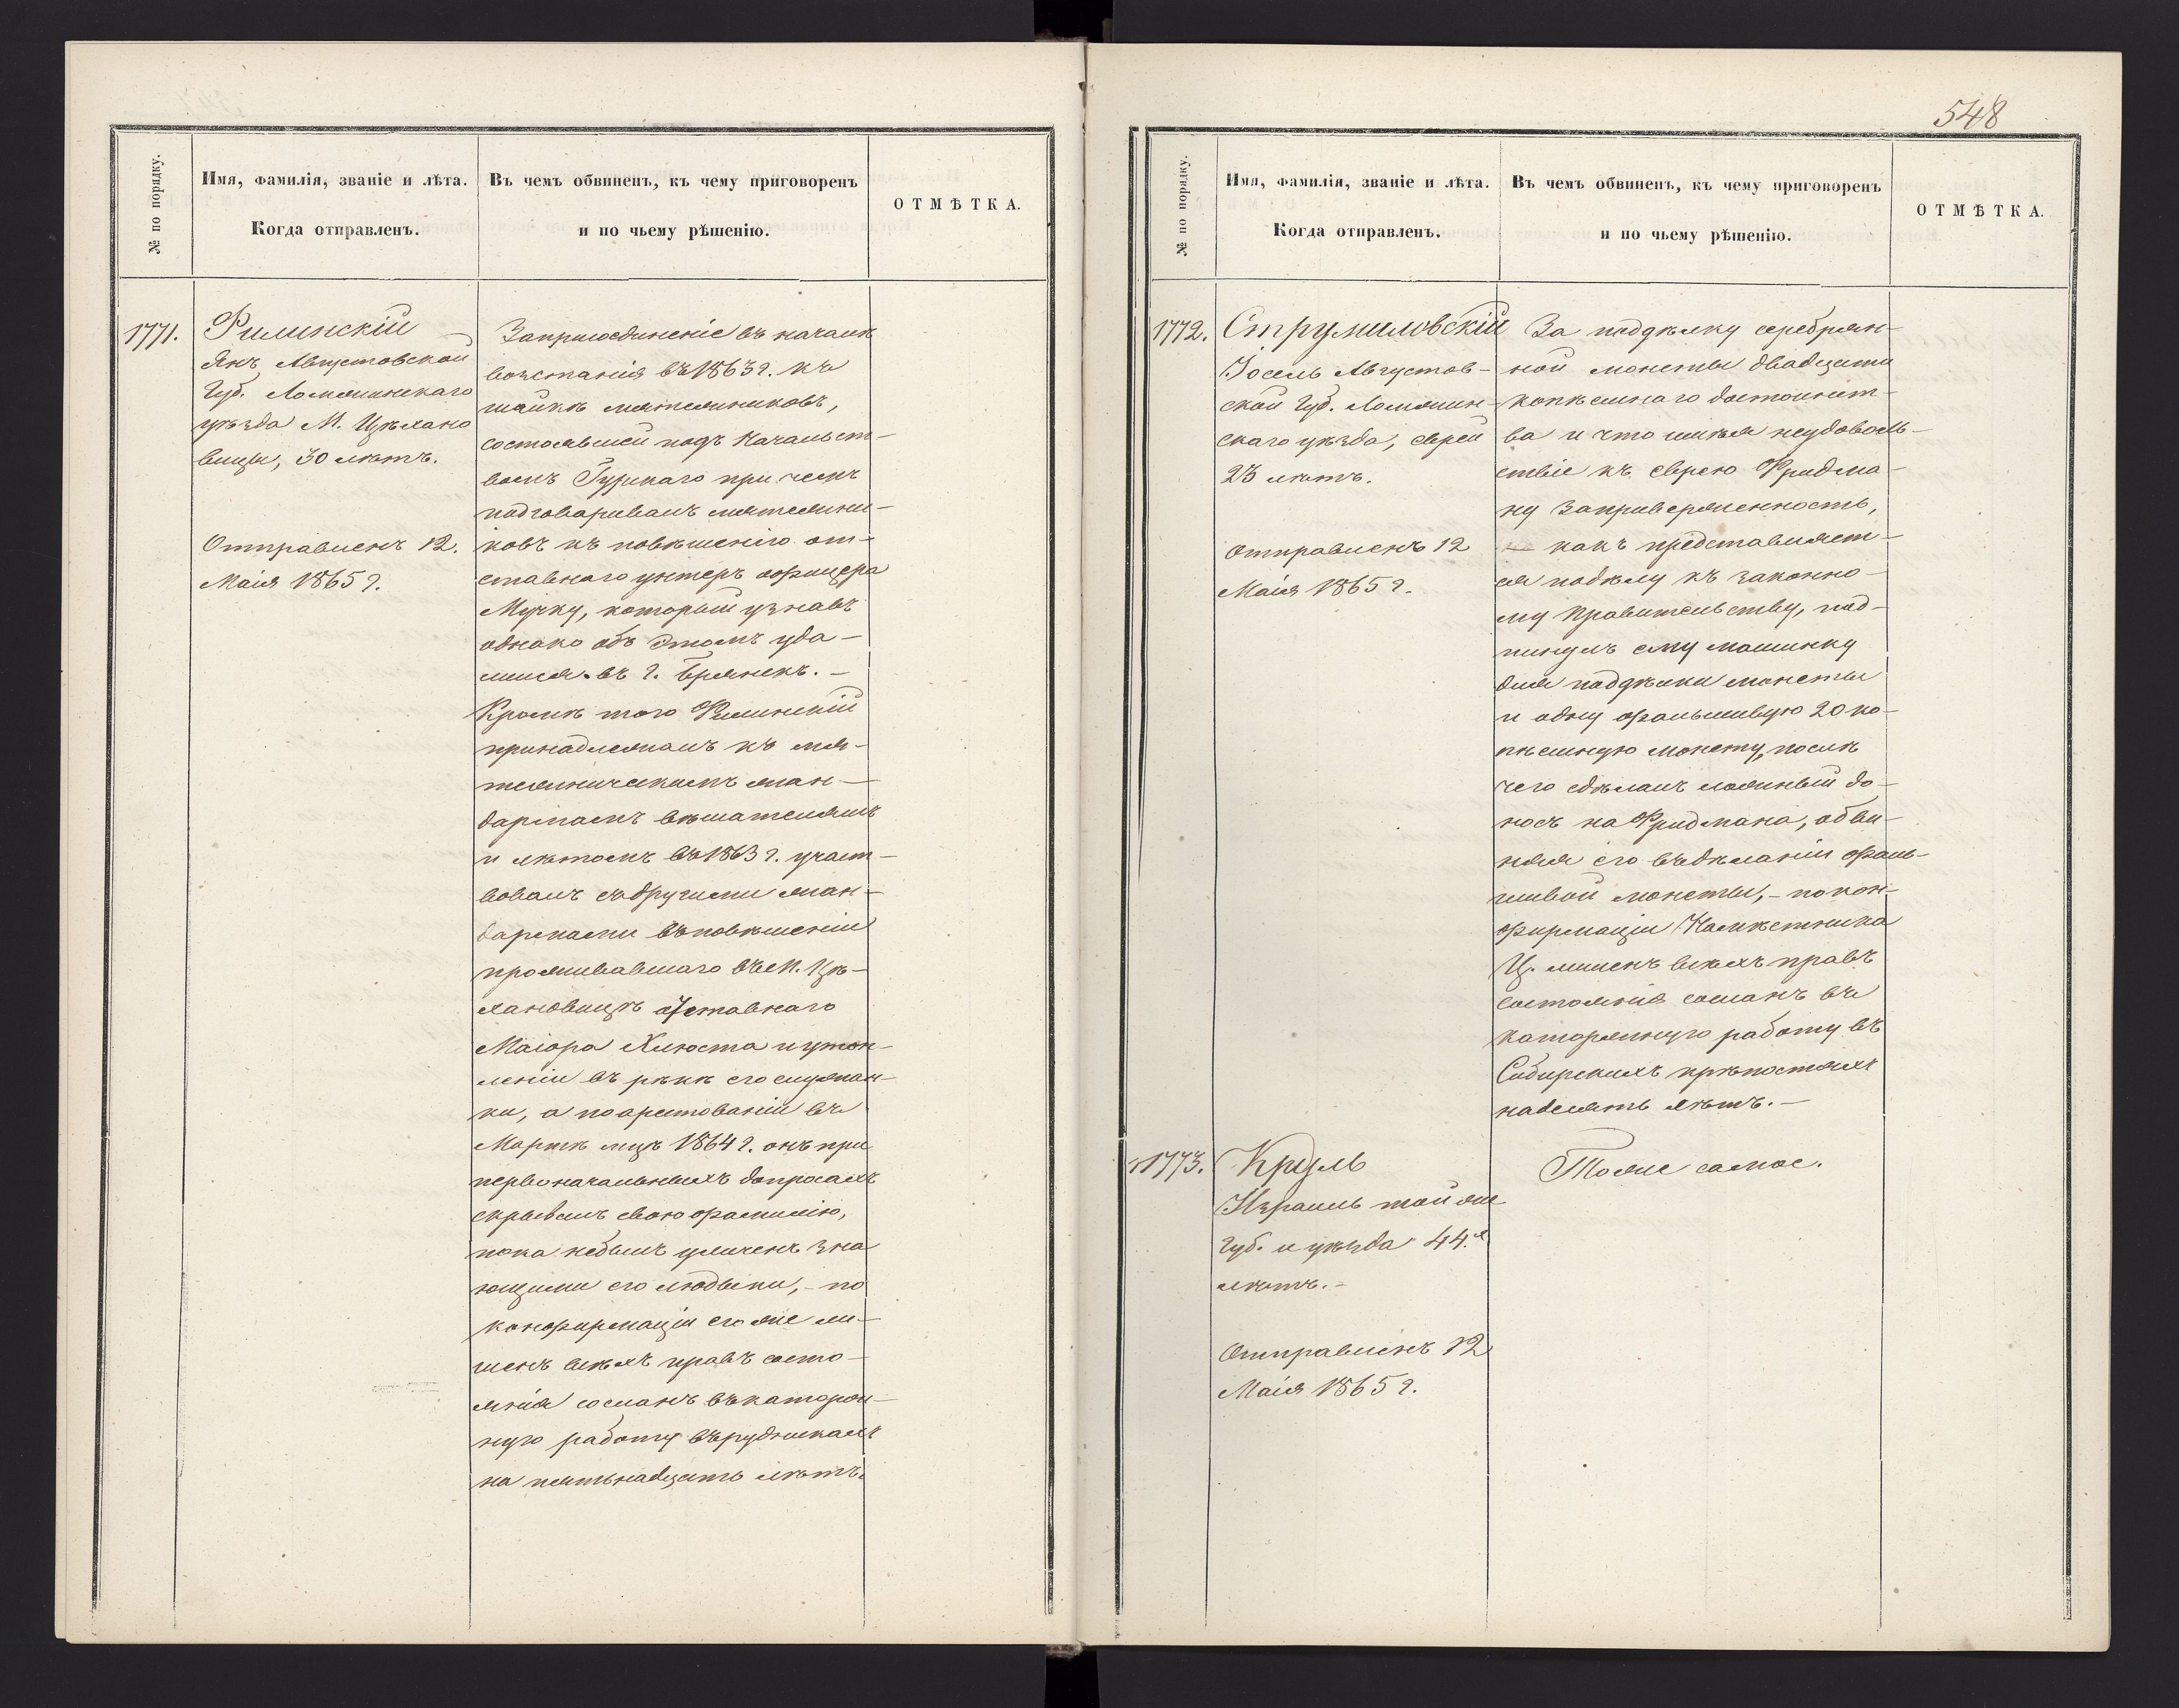 548
№ по порядку.
Имя, фамилія, званіе и лѣта.
Когда отправленъ.
Въ чемъ обвиненъ, къ чему приговоренъ
и по чьему рѣшенію.
ОТМѢТКА.
1771.
Филинскій
Янъ, Августовской
Губ. Ломжинскаго
уѣзда М. Цѣхано
вицы, 30 лѣтъ.
Отправленъ 12.
Маія 1865 г.
Заприсоединеніе въ началѣ
возстанія въ 1863 г. къ
шайкѣ мятежниковъ,
состоявшей подъ Начальст-
вомъ Гурскаго при чемъ
подговаривалъ мятежни-
ковъ къ повѣшенію от-
ставнаго унтеръ офицера
Мучку, который узнавъ
однако объ этомъ уда-
лился въ г. Брянскъ. -
Кромѣ того Филинскій
принадлежалъ къ мя-
тежническимъ жан-
дармамъ вѣшателямъ
и лѣтомъ въ 1863 г. участ-
вовалъ съ другими жан-
дармами въ повѣшеніи
проживавшаго въ м. Цѣ-
хановицѣ отставнаго
Маіора Хлюста и утоп-
леніи въ рѣкѣ его служан-
ки, а по арестованіи въ
Мартѣ мцѣ 1864 г. онъ при
первоначальныхъ допросахъ
скрывалъ свою фамилію,
пока небылъ уличенъ зна
ющими его людьми, - по
конфирмаціи его же ли-
шенъ всѣхъ правъ состо-
янія сосланъ въ каторж-
ную работу въ рудникахъ
на пятьнадцать лѣтъ.
№ по порядку.
Имя, фамилія, званіе и лѣта.
Когда отправленъ.
Въ чемъ обвиненъ, къ чему приговоренъ
и по чьему рѣшенію.
ОТМѢТКА.
1772.
Струмиловскій
Іосель Августов-
ской Губ. Ломжин-
скаго уѣзда, еврей
23 лѣтъ.
Отправленъ 12
Маія 1865 г.
За поддѣлку серебрян-
ной монеты двадцати
копѣечнаго достоинст-
ва и что имѣя неудоволь-
ствіе къ еврею Фридма-
ну за приверженность,
какъ представляет-
ся подѣлу къ законно-
му Правительству, под-
кинулъ ему машинку
для поддѣлки монеты
и одну фальшивую 20 ко-
пѣечную монету, послѣ
чего сдѣлалъ ложный до-
носъ на Фридмана, обви-
няя его въ дѣланіи фаль-
шивой монеты, - по кон-
фирмаціи Намѣстника
Ц. лишенъ всѣхъ правъ
состоянія сосланъ въ
каторжную работу въ
Сибирскихъ крѣпостяхъ
на десять лѣтъ. -
1773.
Круль
Израиль той же
Губ. и уѣзда 44.
лѣтъ. -
Отправленъ 12
Маія 1865 г.
Тоже самое.